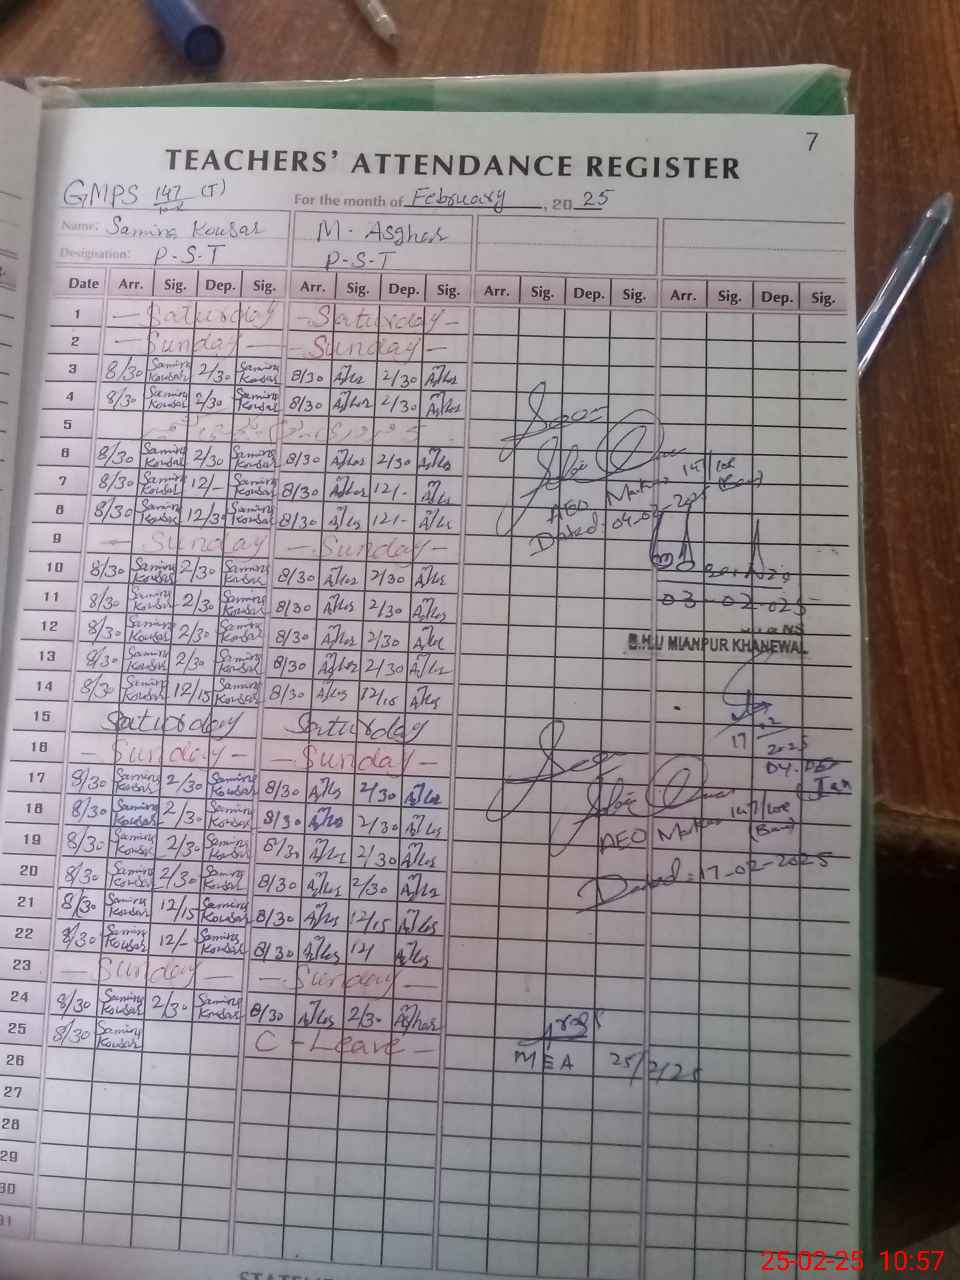 7
TEACHERS' ATTENDANCE REGISTER
GMPS 147 (T) For the month of February, 2025
Name: Samina Kousar M. Asghar
Designation: P.S.T P.S.T
Date Arr. Sig. Dep. Sig. Arr. Sig. Dep. Sig. Arr. Sig. Dep. Sig. Arr. Sig. Dep. Sig.
1 - Saturday - Saturday -
2 - Sunday - Sunday -
3 8/30 Samina Kousar 2/30 Samina Kousar 8/30 2/30
4 8/30 Samina Kousar 2/30 Samina Kousar 8/30 2/30
5
6 8/30 Samina Kousar 2/30 Samina Kousar 8/30 2/30
7 8/30 Samina Kousar 12/- Samina Kousar 8/30 12/-
8 8/30 Samina Kousar 12/30 Samina Kousar 8/30 12/-
9 - Sunday - Sunday -
10 8/30 Samina Kousar 2/30 Samina Kousar 8/30 2/30
11 8/30 Samina Kousar 2/30 Samina Kousar 8/30 2/30
12 8/30 Samina Kousar 2/30 Samina Kousar 8/30 2/30
13 8/30 Samina Kousar 2/30 Samina Kousar 8/30 2/30
14 8/30 Samina Kousar 12/15 Samina Kousar 8/30 12/15
15 Saturday Saturday
16 - Sunday - - Sunday -
17 8/30 Samina Kousar 2/30 Samina Kousar 8/30 2/30
18 8/30 Samina Kousar 2/30 Samina Kousar 8/30 2/30
19 8/30 Samina Kousar 2/30 Samina Kousar 8/30 2/30
20 8/30 Samina Kousar 2/30 Samina Kousar 8/30 2/30
21 8/30 Samina Kousar 12/15 Samina Kousar 8/30 12/15
22 8/30 Samina Kousar 12/- Samina Kousar 8/30 12/
23 - Sunday - - Sunday -
24 8/30 Samina Kousar 2/30 Samina Kousar 8/30 2/30 Asghar
25 8/30 Samina Kousar C - Leave -
26
27
28
29
30
31
AEO Markaz
Dated: 04-02-2025
03-02-025
B.H.U MIANPUR KHANEWAL
17 02
2025
AEO Markaz
Dated: 17-02-2025
MEA 25/2/25
25-02-25 10:57